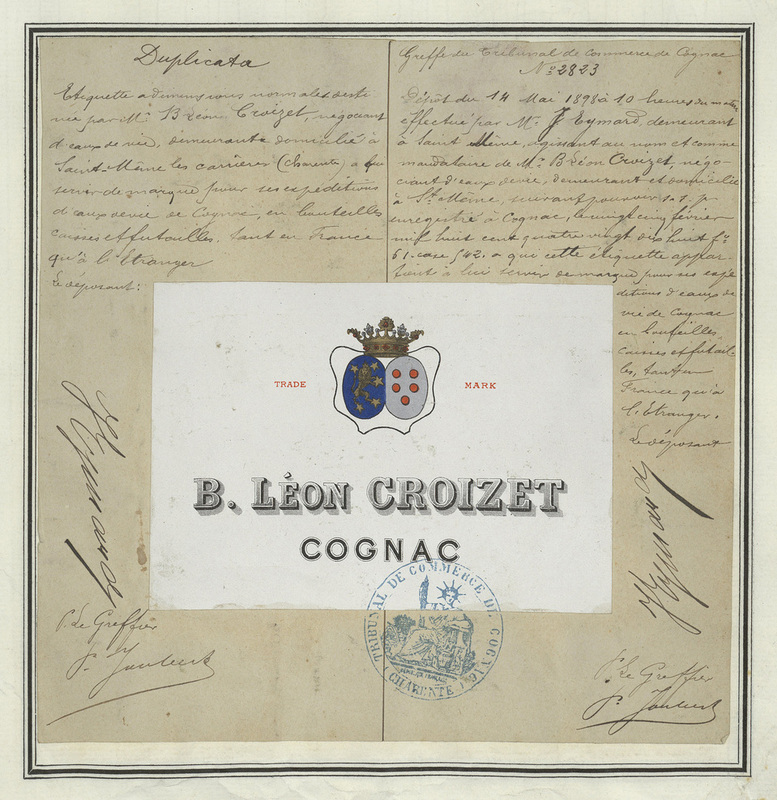 Duplicata
Etiquette à dimensions normales desti
née par Mr. B Léon Croizet, négociant
d'eaux de vie, demeurant & domicilié à
Saint-Même les carrières (Charente) à
servir de marque pour ses expéditions
d'eaux de vie de Cognac, en bouteilles
caisses et futailles, tant en France
qu'à l'Etranger
Le déposant:
J Eymard
Pr Le Greffier
P. Joubert
Greffe du Tribunal de Commerce de Cognac
No 2823
Dépôt du 14 Mai 1898 à 10 heures du matin
effectué par Mr. J Eymard, demeurant
à Saint Même, agissant au nom et comme
mandataire de Mr. B Léon Croizet, négo-
ciant d'eaux de vie, demeurant et domicilié
à St. Même, suivant pouvoir s.s.p.
enregistré à Cognac, le vingt cinq février
mil huit cent quatre vingt dix huit fo
61. case 542. a qui cette étiquette appar-
tient à lui servir de marque pour ses expé
ditions d'eaux de
vie de Cognac
en bouteilles
caisses et futail-
les, tant en
France qu'à
l'Etranger.
Le déposant
J Eymard
Pr Le Greffier
P. Joubert
TRADE MARK
B. LÉON CROIZET
COGNAC
TRIBUNAL DE COMMERCE DE COGNAC
CHARENTE